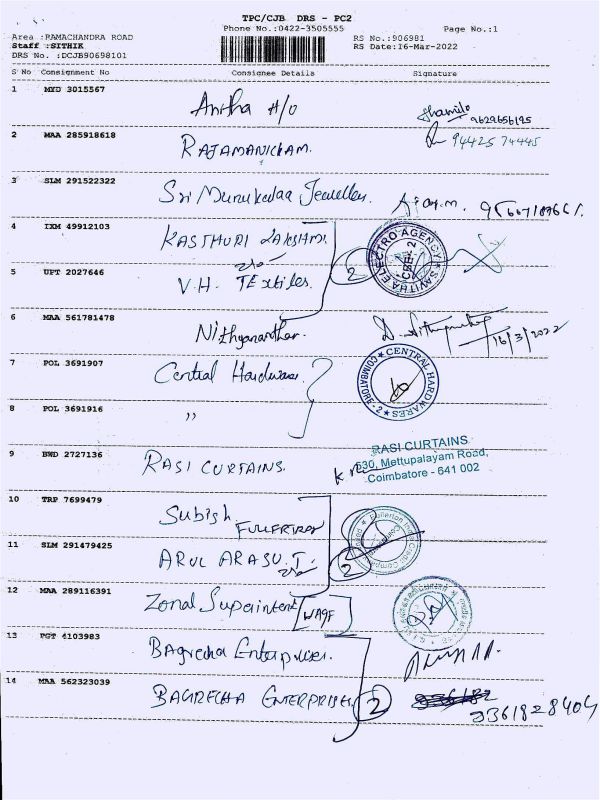 TPC/CJB DRS - PC2
Phone No.:0422-3505555
Page No.:1
Area :RAMACHANDRA ROAD
RS No.:906981
Staff :SITHIK
RS Date:16-Mar-2022
DRS No. :DCJB90698101
S No Consignment No Consignee Details Signature
1 MYD 3015567
Anitha H/O
9629656195
2 MAA 285918618
Rajamanickam.
94425 74445
3 SLM 291522322
Sri Murukalaa Jewellery.
4 IXM 49912103
Kasthuri Lakshmi
SAVITHA ELECTRO AGENCY
CBE-2
5 UPT 2027646
V.H. Textiles.
2
6 MAA 561781478
Nithyananthan.
16/3/2022
7 POL 3691907
Central Hardware.
CENTRAL HARDWARES
COIMBATORE - 2
8 POL 3691916
"
9 BWD 2727136
Rasi Curtains.
RASI CURTAINS
530, Mettupalayam Road,
Coimbatore - 641 002
10 TRP 7699479
Subish
Fullerton
11 SLM 291479425
Arul Arasu.T.
2
12 MAA 289116391
Zonal Superintent WAQF
13 PGT 4103983
Bagrecha Enterprises.
14 MAA 562323039
Bagrecha Enterprises
2
9361828404